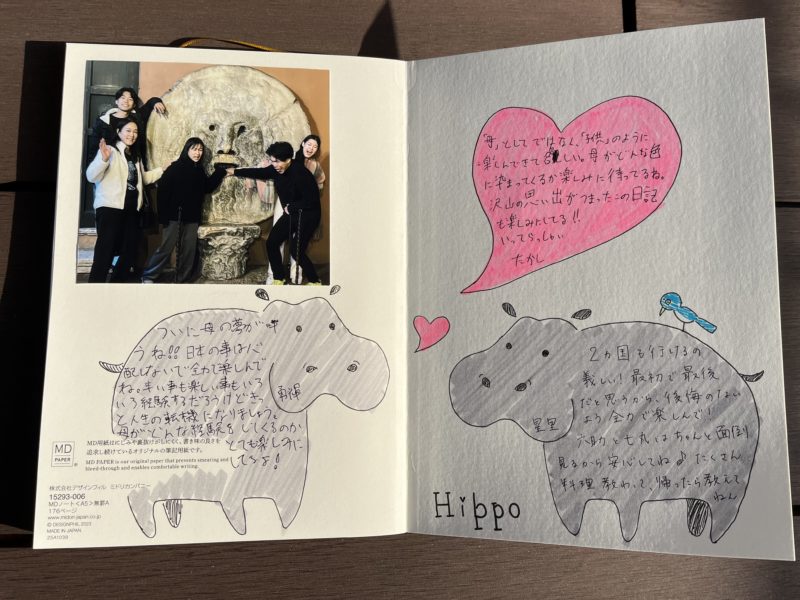 ついに母の夢が叶
うね!!日本の事は心
配しないで全力で楽しんで
ね。辛い事も楽しい事もいろ
いろ経験するだろうけどきっ
と人生の転機になりましょう。
母がどんな経験をしてくるのか
とても楽しみに
してるよ!
MD用紙はにじみや裏抜けがしにくく、書き味の良さを
追求し続けているオリジナルの筆記用紙です。
MD PAPER is our original paper that prevents smearing and
bleed-through and enables comfortable writing.
MD
PAPER
株式会社デザインフィル ミドリカンパニー
15293-006
MDノート<A5>無罫A
176ページ
www.midori-japan.co.jp
© DESIGNPHIL 2023
MADE IN JAPAN
「母」としてではなく、「子供」のように
楽しんできて欲しい。母がどんな色
に染まってくるか楽しみに待ってるね。
沢山の思い出がつまったこの日記
も楽しみにしてる!!
いってらっしゃい
たかし
2カ国も行けるの
羨しい!最初で最後
だと思うから、後悔のない
よう全力で楽しんで!
はちゃんと面倒
見るから安心してね♪たくさん
料理教わって、帰ったら教えて
ねん
星里
Hippo